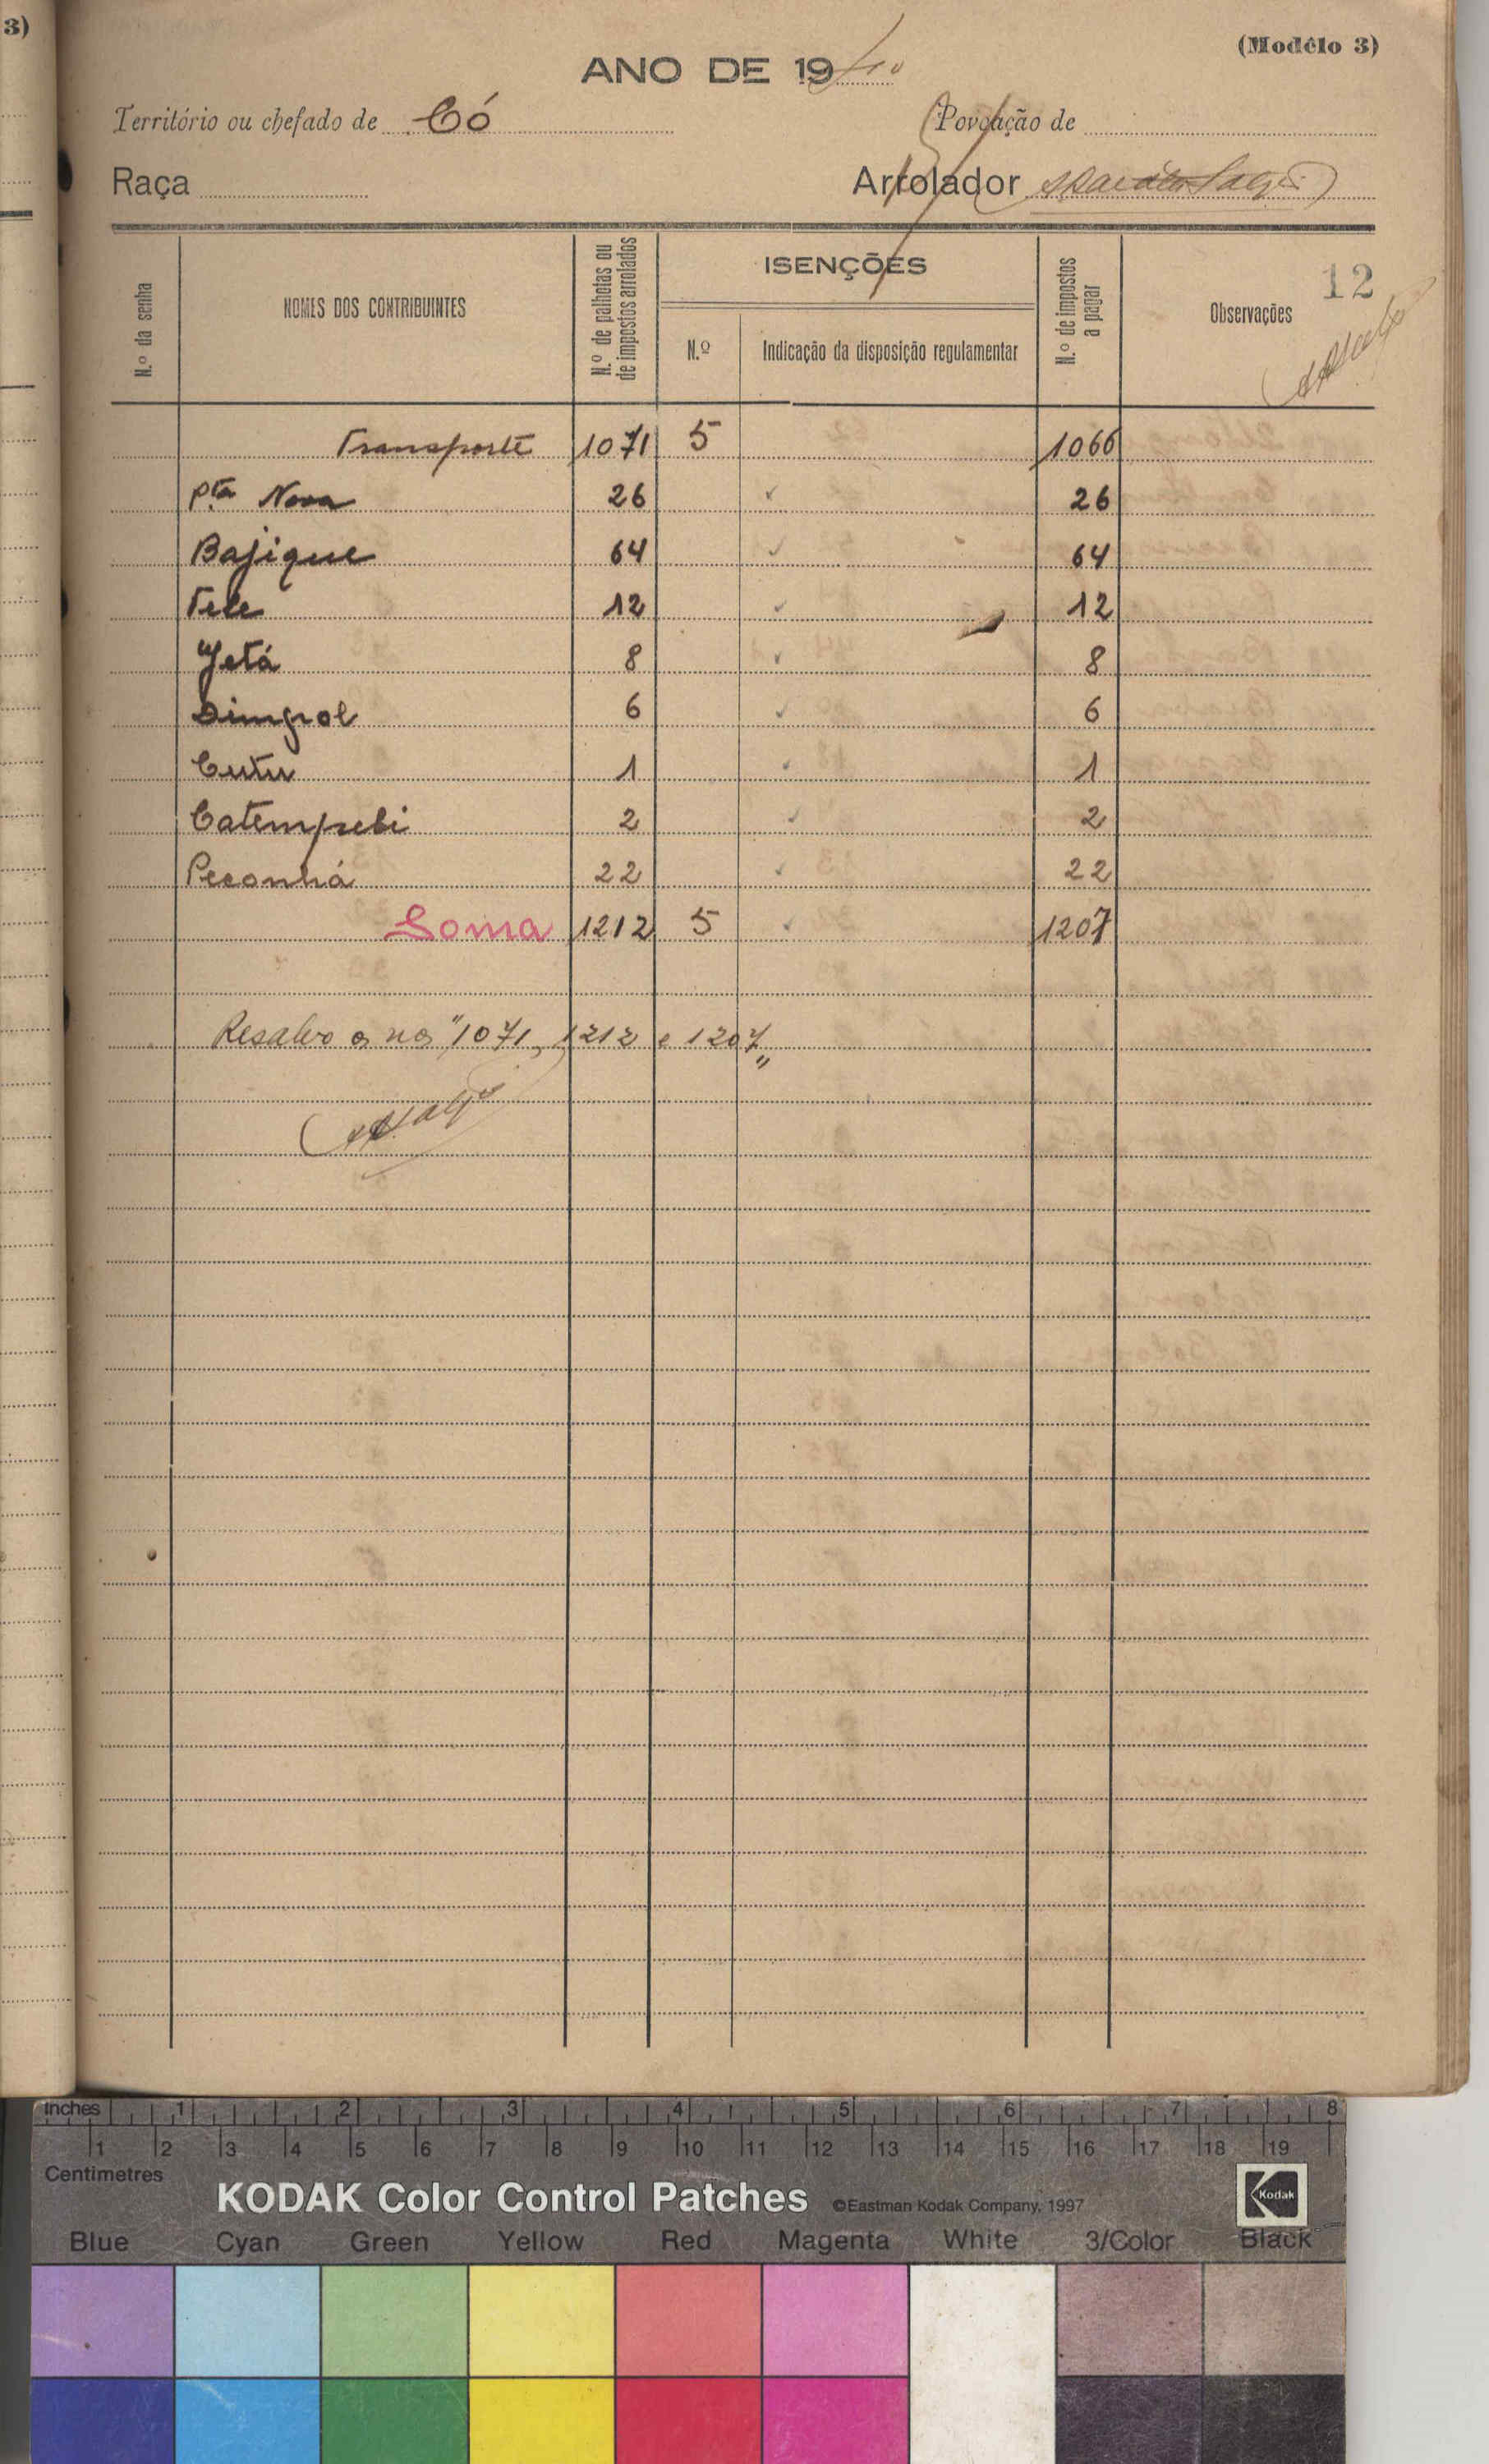 3)
(Modêlo 3)
ANO DE 1940
Território ou chefado de Có
Povoação de
Raça
Arrolador
12
N.º da senha
NOMES DOS CONTRIBUINTES
N.º de palhotas ou de impostos arrolados
ISENÇÕES
N.º
Indicação da disposição regulamentar
N.º de impostos a pagar
Observações
Transporte 1071 5 1066
Pta Nova 26 26
Bajique 64 64
Tele 12 12
Jetá 8 8
Dimgrol 6 6
Cutu 1 1
Catempubi 2 2
Peconhá 22 22
Soma 1212 5 1207
Resalvo os nos "1071, 1212 e 1207"
Inches 1 2 3 4 5 6 7 8
1 2 3 4 5 6 7 8 9 10 11 12 13 14 15 16 17 18 19
Centimetres
KODAK Color Control Patches ©Eastman Kodak Company, 1997 Kodak
Blue Cyan Green Yellow Red Magenta White 3/Color Black